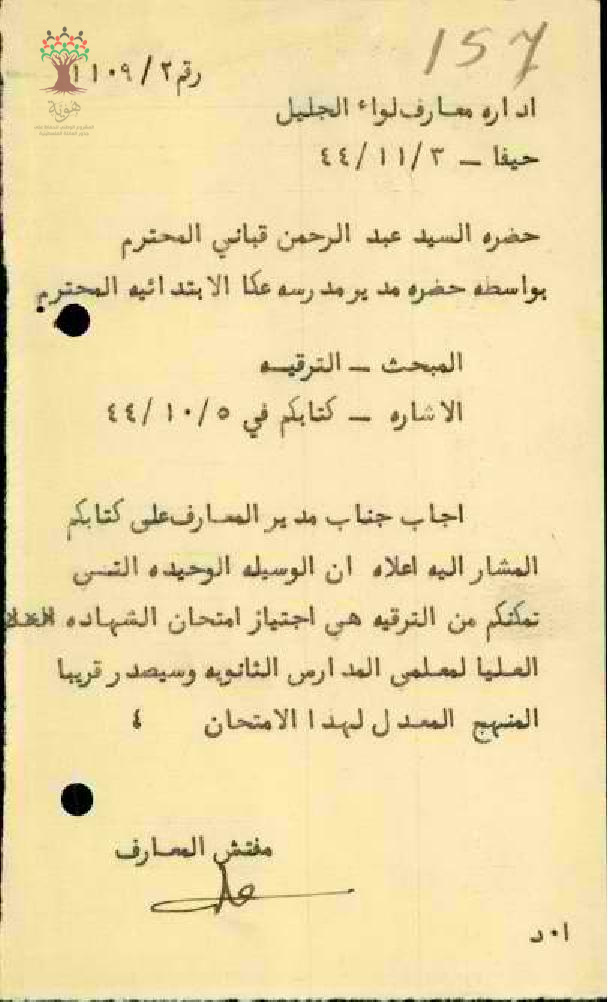 157
رقم ١١٠٩/٢
هوية
اداره معارف لواء الجليل
حيفا — ٤٤/١١/٣
حضره السيد عبد الرحمن قباني المحترم
بواسطه حضره مدير مدرسه عكا الابتدائيه المحترم
المبحث — الترقيه
الاشاره — كتابكم في ٤٤/١٠/٥
اجاب جناب مدير المعارف على كتابكم
المشار اليه اعلاه ان الوسيله الوحيده التي
تمكنكم من الترقيه هي اجتياز امتحان الشهاده
العليا لمعلمي المدارس الثانويه وسيصدر قريبا
المنهج المعدل لهذا الامتحان ٤
مفتش المعارف
ا٠د